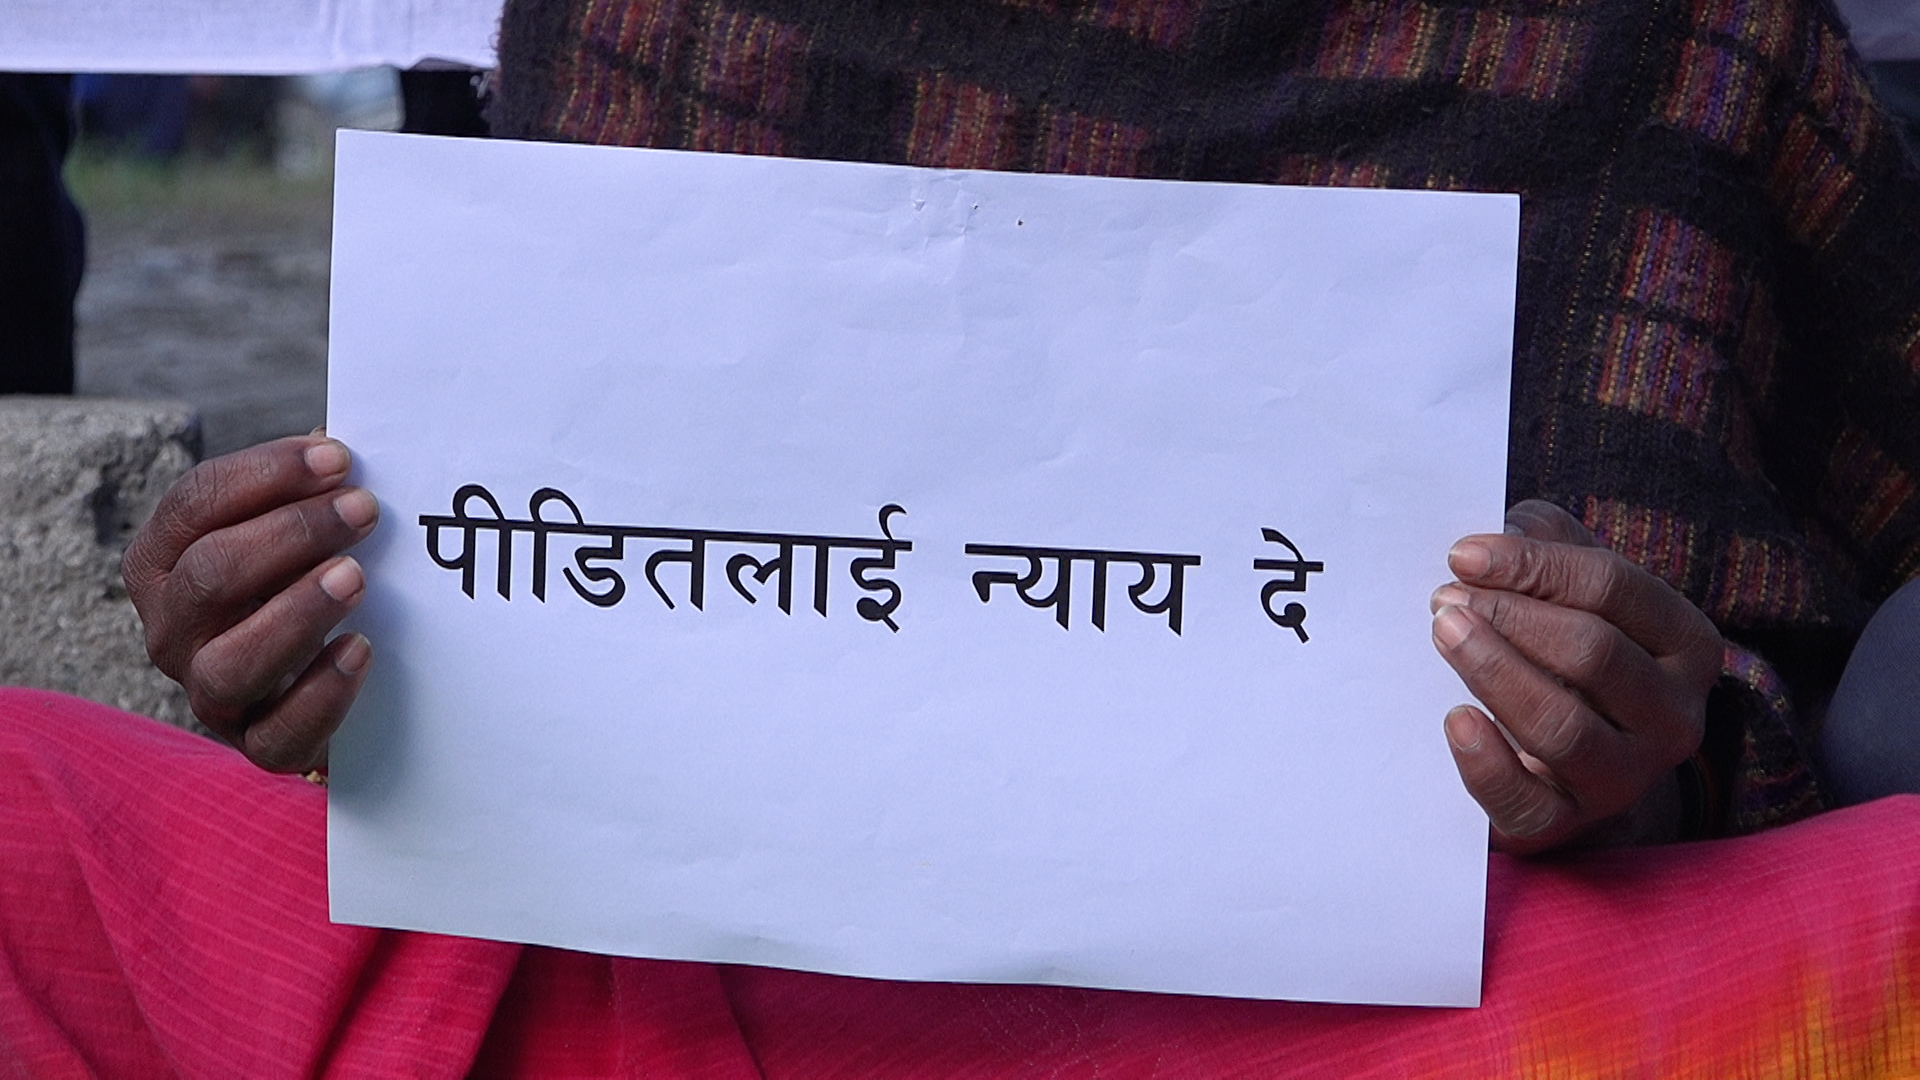 पीडितलाई न्याय दे